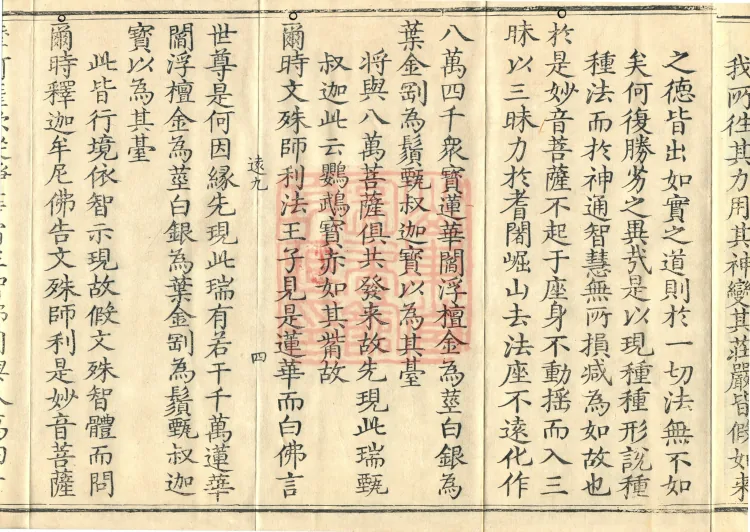 我所往其力用其神變其莊嚴皆假如来
之德皆出如實之道則於一切法無不如
矣何復勝劣之異㢤是以現種種形說種
種法而於神通智慧無所損减為如故也
於是妙音菩薩不起于座身不動揺而入三
昧以三昧力於耆闍崛山去法座不遠化作
八萬四千衆寶蓮華閻浮檀金為莖白銀為
葉金剛為鬚甄叔迦寶以為其臺
将與八萬菩薩俱共發来故先現此瑞甄
叔迦此云鸚鵡寶亦如其觜故
爾時文殊師利法王子見是蓮華而白佛言
遠九 四
世尊是何因縁先現此瑞有若干千萬蓮華
閻浮檀金為莖白銀為葉金剛為鬚甄叔迦
寶以為其臺
此皆行境依智示現故假文殊智體而問
爾時釋迦牟尼佛告文殊師利是妙音菩薩